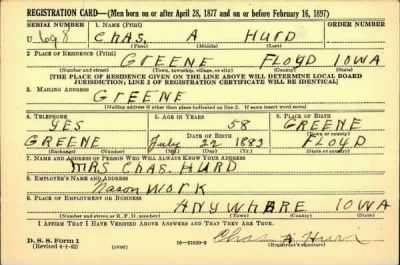 REGISTRATION CARD—(Men born on or after April 28, 1877 and on or before February 16, 1897)
SERIAL NUMBER 1. NAME (Print)
U 698 CHAS. A HURD
(First) (Middle) (Last)
2. PLACE OF RESIDENCE (Print)
GREENE FLOYD IOWA
(Number and street) (Town, township, village, or city) (County) (State)
[THE PLACE OF RESIDENCE GIVEN ON THE LINE ABOVE WILL DETERMINE LOCAL BOARD
JURISDICTION; LINE 2 OF REGISTRATION CERTIFICATE WILL BE IDENTICAL]
3. MAILING ADDRESS
GREENE
[Mailing address if other than place indicated on line 2. If same insert word same]
4. TELEPHONE 5. AGE IN YEARS 6. PLACE OF BIRTH
YES 58 GREENE
DATE OF BIRTH (Town or county)
GREENE July 22 1883 FLOYD
(Exchange) (Number) (Mo.) (Day) (Yr.) (State or country)
7. NAME AND ADDRESS OF PERSON WHO WILL ALWAYS KNOW YOUR ADDRESS
MRS CHAS. HURD
8. EMPLOYER'S NAME AND ADDRESS
Mason WORK
9. PLACE OF EMPLOYMENT OR BUSINESS
ANYWHARE IOWA
(Number and street or R. F. D. number) (Town) (County) (State)
I AFFIRM THAT I HAVE VERIFIED ABOVE ANSWERS AND THAT THEY ARE TRUE.
D. S. S. Form 1
(Revised 4-1-42) (over) 16—21630-2 Chas A Hurd
(Registrant's signature)